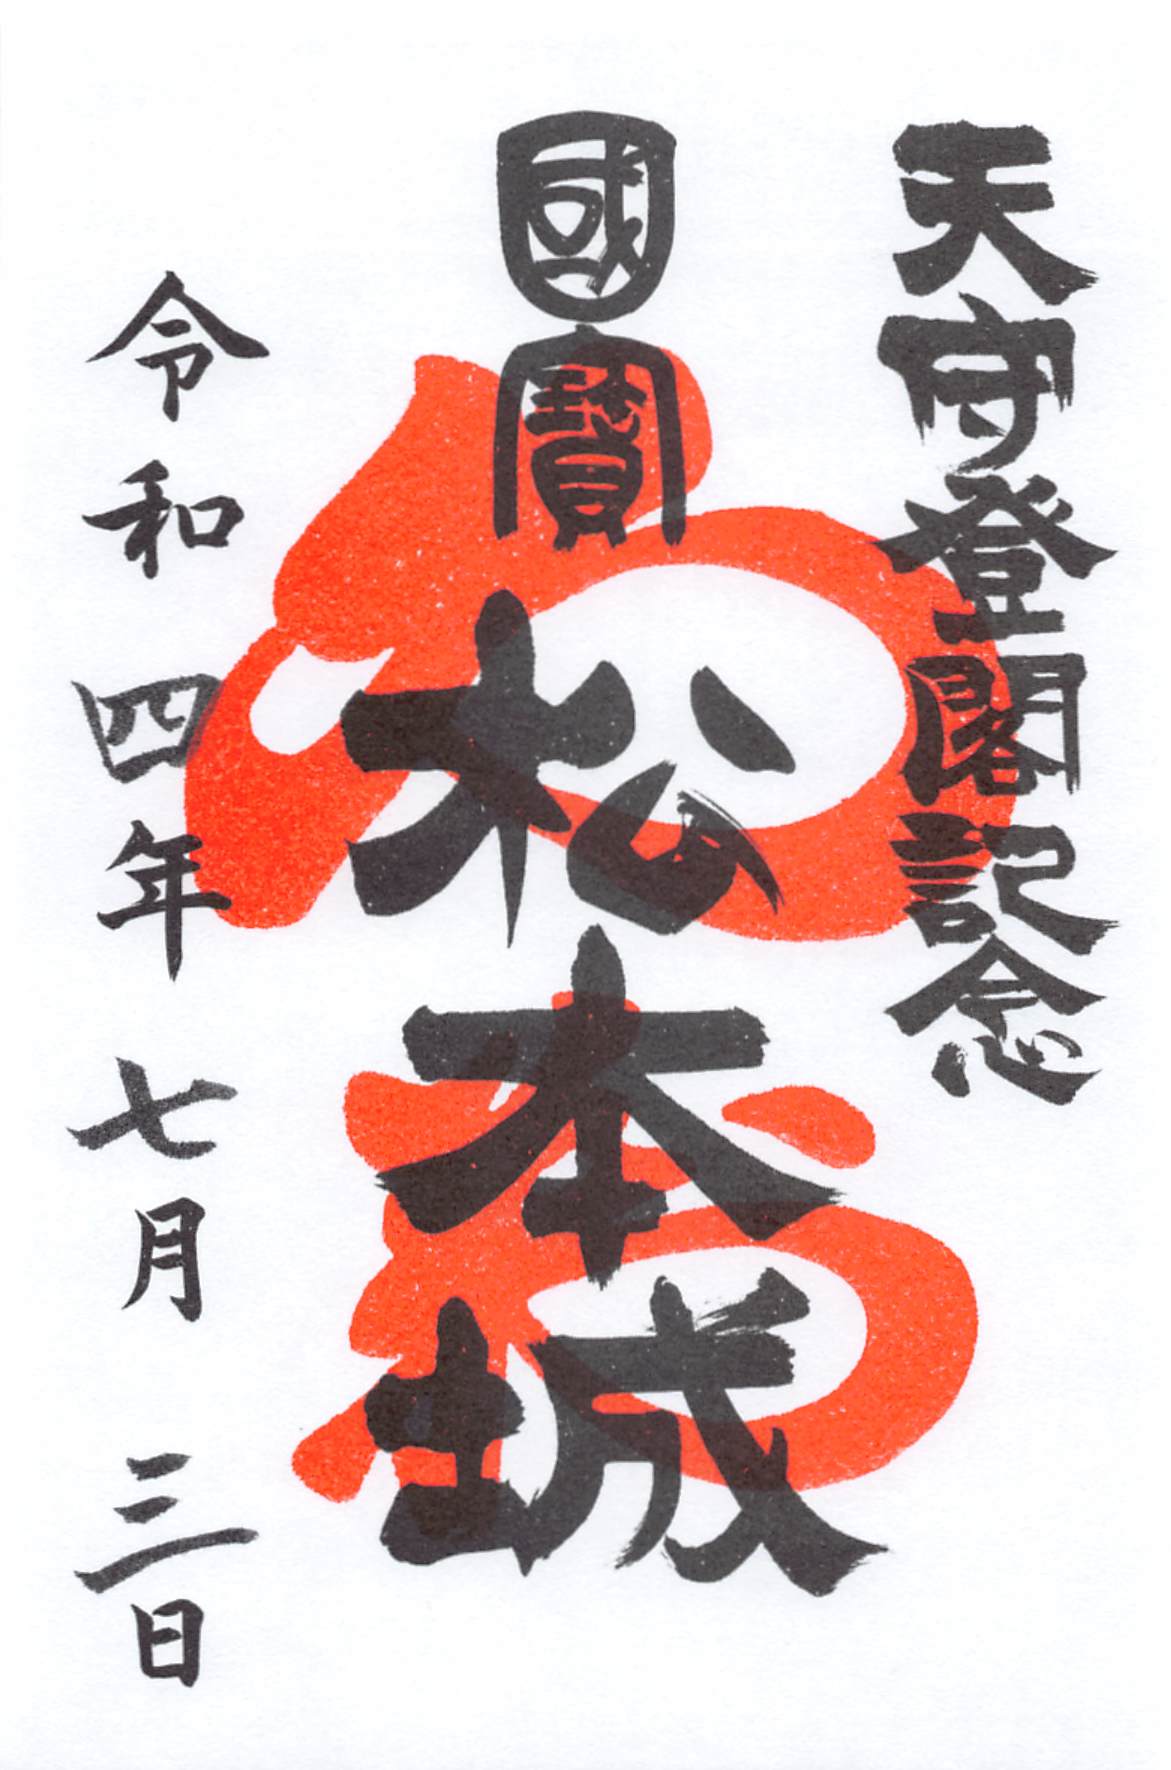 天守登閣記念
國寶
松本城
令和四年七月三日